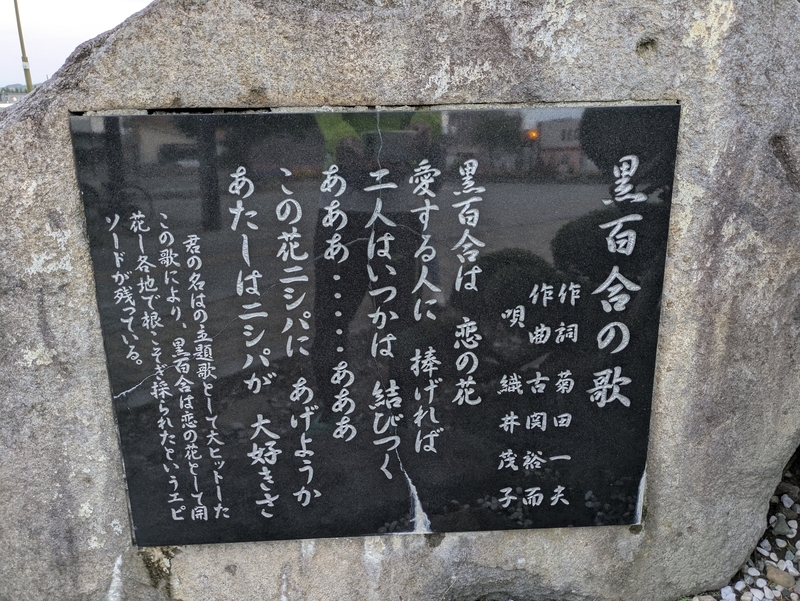 黒百合の歌
作詞 菊田一夫
作曲 古関裕而
唄 織井茂子
黒百合は 恋の花
愛する人に 捧げれば
二人はいつかは 結びつく
あああ・・・・・あああ
この花ニシパに あげようか
あたしはニシパが 大好きさ
君の名はの主題歌として大ヒットした
この歌により、黒百合は恋の花として開
花し各地で根こそぎ採られたというエピ
ソードが残っている。